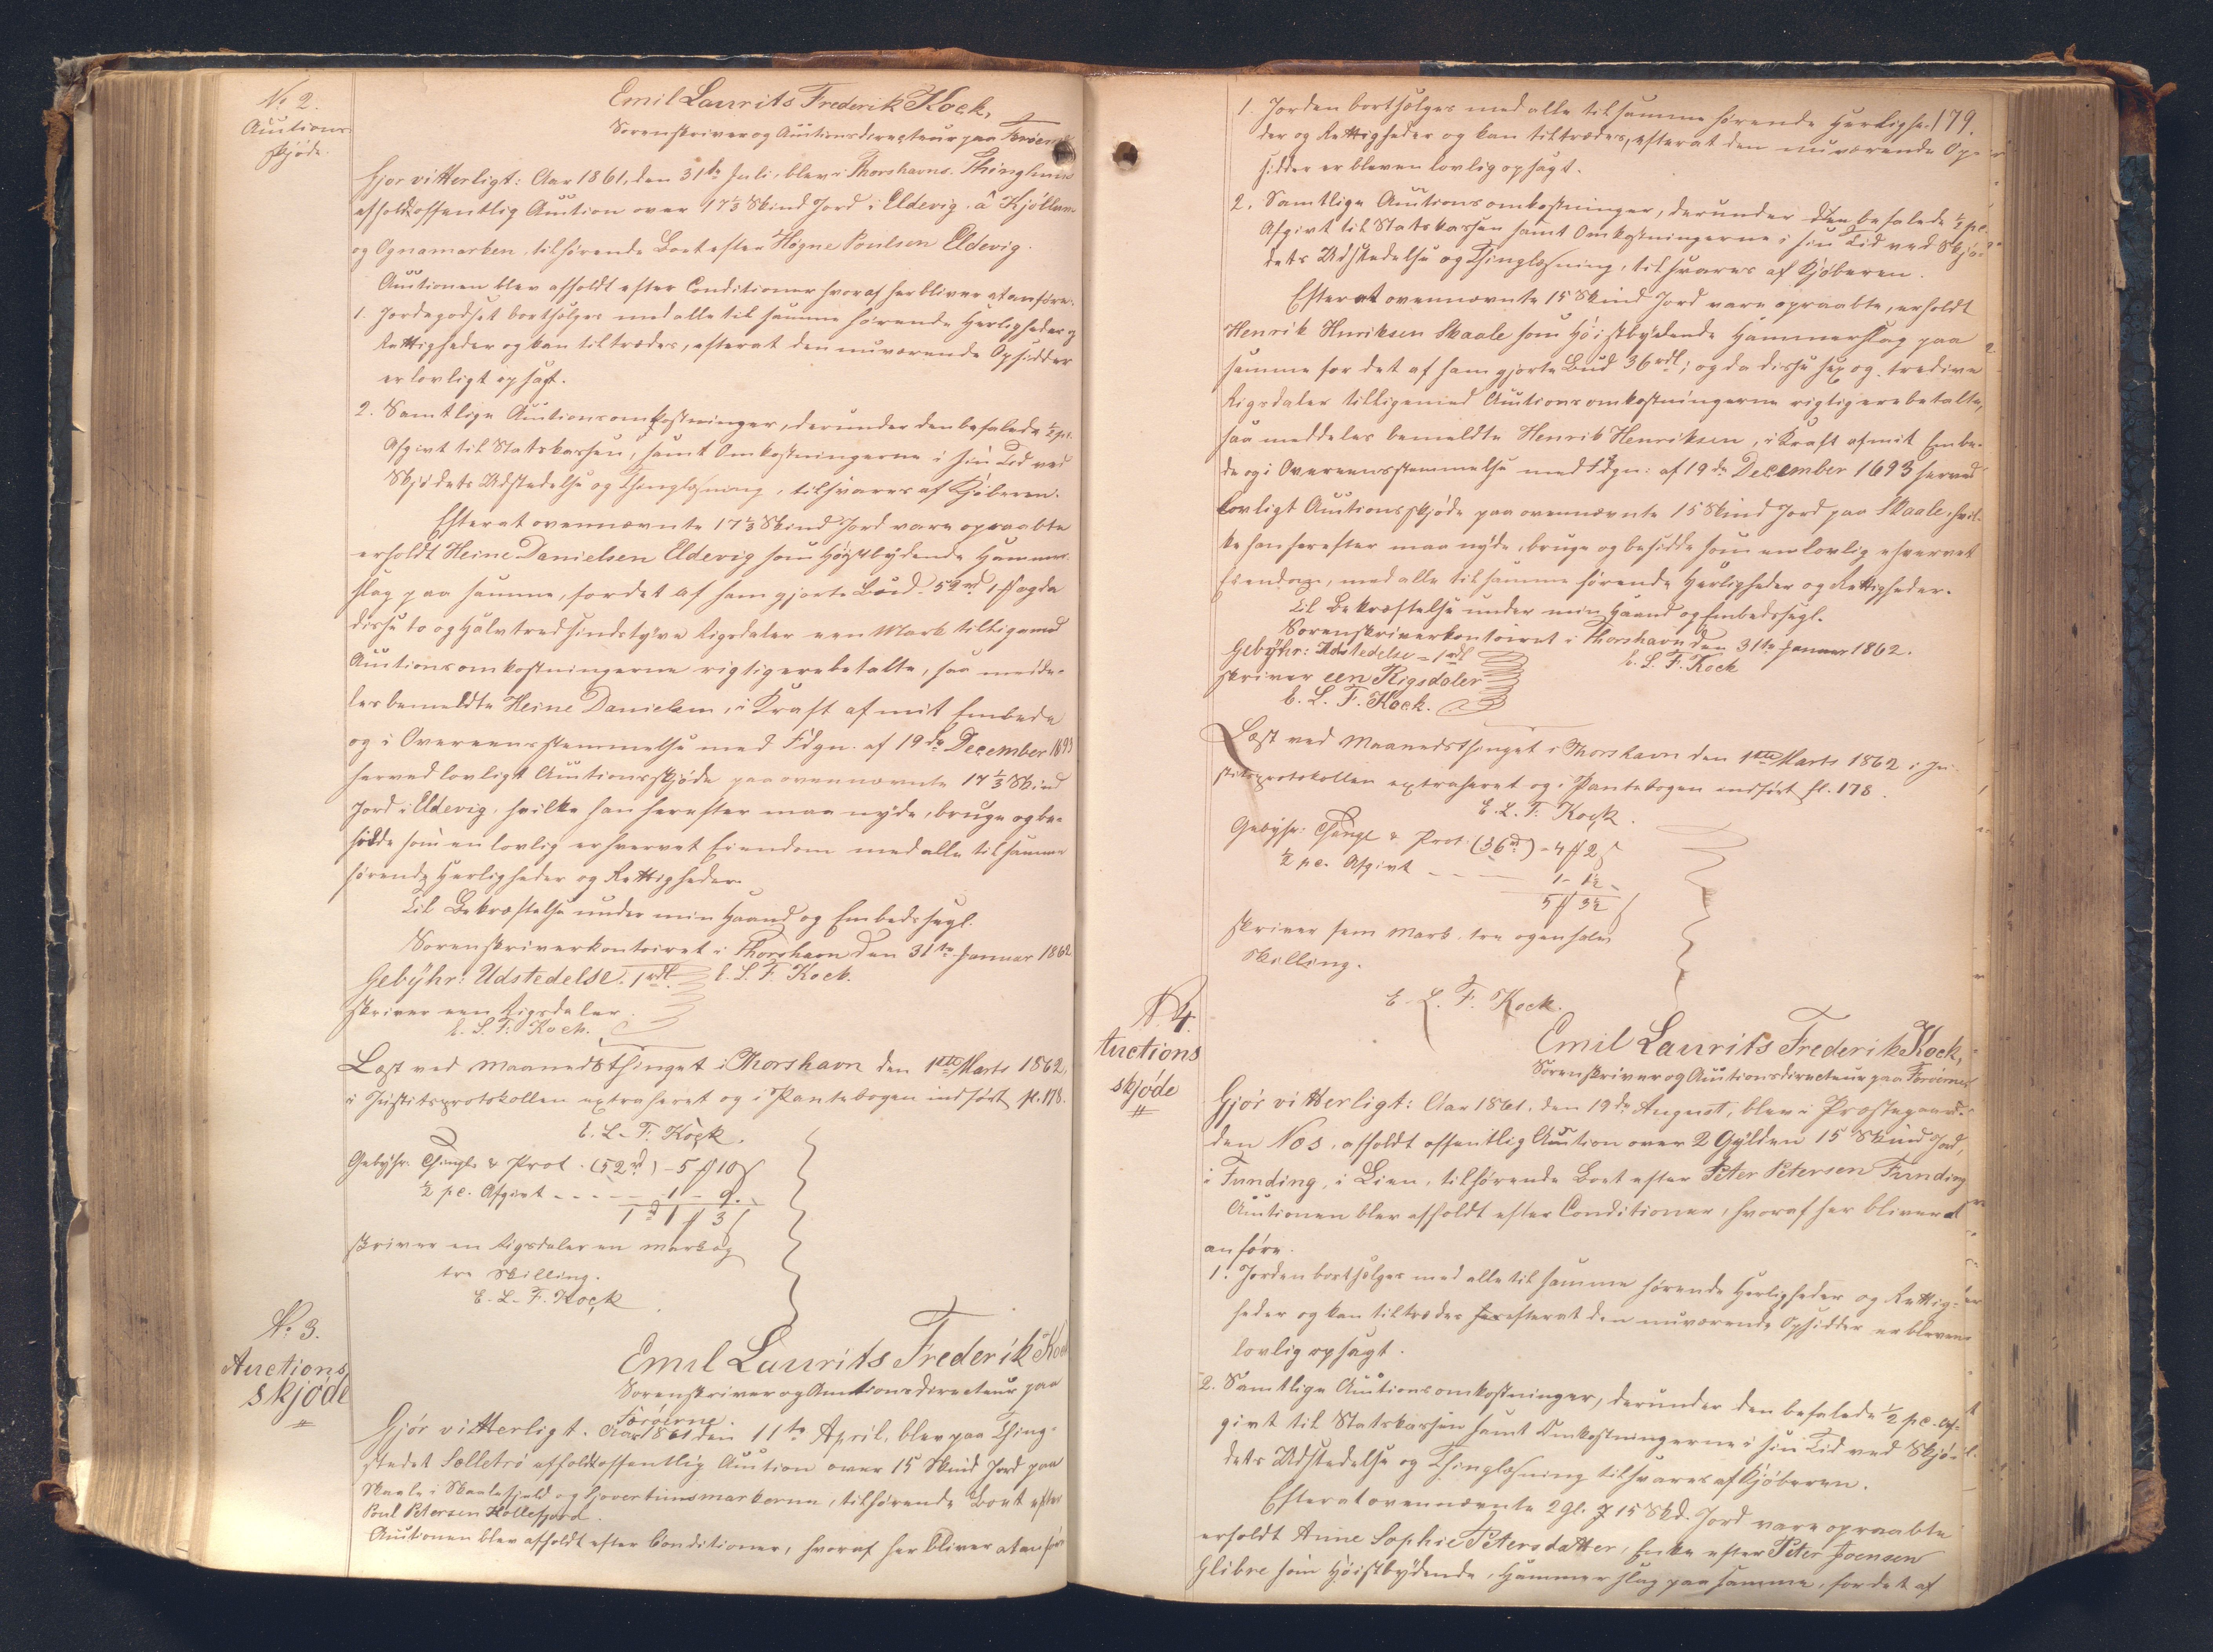 No 2.
Auctions
skjøde.
Emil Laurits Frederik Kock,
Sorenskriver og Auctionsdirecteur paa Færøerne
Gjør vitterligt: Aar 1861, den 31te Juli, blev i Thorshavns Thinghuus
afholdt offentlig Auction over 17 1/3 Skind Jord i Eldevig, â Kjøllum
og Ognamarken, tilhørende Boet efter Høgne Poulsen Eldevig.
Auctionen blev afholdt efter Conditioner hvoraf her bliver at anføre:
1. Jordegodset bortsælges med alle til samme hørende Herligheder og
Rettigheder og kan tiltrædes, efterat den nuværende Opsidder
er lovligt opsagt.
2. Samtlige Auctionsomkostninger, derunder den befalede 1/2 pc.
Afgivt til Statskassen, samt Omkostningerne i sin Tid ved
Skjødets Udstedelse og Thinglæsning, tilsvares af Kjøberen.
Efterat ovennævnte 17 1/3 Skind Jord vare opraabte
erholdt Heine Danielsen Eldevig som Høistbydende Hammer-
slag paa samme, for det af ham gjorte Bud 52 rd 1 ß og da
disse to og halvtredsindstyve Rigsdaler een Mark tilligemed
Auctionsomkostningerne rigtig ere betalte, saa medde-
les bemeldte Heine Danielsen, i Kraft af mit Embede
og i Overeensstemmelse med Fdgn. af 19de December 1693
herved lovligt Auctionsskjøde paa ovennævnte 17 1/3 Skind
Jord i Eldevig, hvilke han herefter maa nyde, bruge og be-
sidde som en lovlig erhvervet Eiendom med alle til samme
hørende Herligheder og Rettigheder.
Til Bekræftelse under min Haand og Embedssegl.
Sorenskriverkontoiret i Thorshavn den 31te Januar 1862
Gebÿhr: Udstedelse. 1 rdl. E. L. F. Kock.
skriver een Rigsdaler.
E. L. F. Kock.
Læst ved Maanedsthinget i Thorshavn den 1ste Marts 1862,
i Justitsprotokollen extraheret og i Pantebogen indført fl. 178.
E. L. F. Kock.
Gebÿhr. Thingl. & Prot. (52 rd) - 5 ß 10 s
1/2 pc. Afgivt - - - - - 1 - 9. -
1 rd 1 ß 3 s
skriver en Rigsdaler en Mark og
tre Skilling.
E. L. F. Kock
No 3.
Auctions
skjøde
Emil Laurits Frederik Kock
Sorenskriver og Auctionsdirecteur paa
Færøerne.
Gjør vitterligt. Aar 1861 den 11te April, blev paa Thing-
stedet Sælletrø afholdt offentlig Auction over 15 Skind Jord paa
Skaale i Skaalefjeld og markerne, tilhørende Boet efter
Poul Petersen Kollefjord.
Auctionen blev afholdt efter Conditioner, hvoraf her bliver at anføre
179.
1. Jorden bortsælges med alle til samme hørende Herlighe-
der og Rettigheder og kan tiltrædes, efterat den nuværende Op-
sidder er bleven lovlig opsagt.
2. Samtlige Auctionsomkostninger, derunder den befalede 1/2 pc.
Afgivt til Statskassen samt Omkostningerne i sin Tid ved Skjø-
dets Udstedelse og Thinglæsning, tilsvares af Kjøberen.
Efterat ovennævnte 15 Skind Jord vare opraabte, erholdt
Henrik Henriksen Skaale som Høistbydende Hammerslag paa
samme for det af ham gjorte Bud 36 rdl; og da disse sex og tredive
Rigsdaler tilligemed Auctionsomkostningerne rigtig ere betalte,
saa meddeles bemeldte Henrik Henriksen, i Kraft af mit Embe-
de og i Overeensstemmelse med Fdgn: af 19de December 1693 herved
lovligt Auctionsskjøde paa ovennævnte 15 Skind Jord paa Skaale, hvil-
ke han herefter maa nyde, bruge og besidde som en lovlig erhvervet
Eiendom, med alle til samme hørende Herligheder og Rettigheder.
Til Bekræftelse under min Haand og Embedssegl.
Sorenskriverkontoiret i Thorshavn den 31te Januar 1862.
Gebÿhr: Udstedelse = 1 rdl E. L. F. Kock
skriver een Rigsdaler
E. L. F. Kock.
Læst ved Maanedsthinget i Thorshavn den 1ste Marts 1862 i Ju-
stitsprotokollen extraheret og i Pantebogen indført fl. 178.
E. L. F. Kock.
Gebÿhr: Thingl & Prot. (36 rd) - 4 ß 2 s
1/2 pc. Afgivt - - - 1 - 1 1/2 -
5 ß 3 1/2 s
skriver fem Mark tre og en halv
Skilling.
E. L. F. Kock.
N. 4.
Auctions
skjøde
Emil Laurits Frederik Kock,
Sorenskriver og Auctionsdirecteur paa Færøerne
Gjør vitterligt: Aar 1861, den 19de August, blev i Præstegaar-
den Nos, afholdt offentlig Auction over 2 Gÿlden 15 Skind Jord,
i Funding, i Lien, tilhørende Boet efter Peter Petersen Funding
Auctionen blev afholdt efter Conditioner, hvoraf her bliver at
anføre.
1. Jorden bortsælges med alle til samme hørende Herligheder og Rettig-
heder og kan tiltrædes efterat den nuværende Opsidder er bleven
lovlig opsagt.
2. Samtlige Auctionsomkostninger, derunder den befalede 1/2 pc. Af-
givt til Statskassen samt Omkostningerne i sin Tid ved Skjø-
dets Udstedelse og Thinglæsning tilsvares af Kjøberen.
Efterat ovennævnte 2 Gl. 15 Skd. Jord vare opraabte
erholdt Anne Sophie Petersdatter, Enke efter Peter Joensen
Glibre som Høistbydende, Hammerslag paa samme, for det af